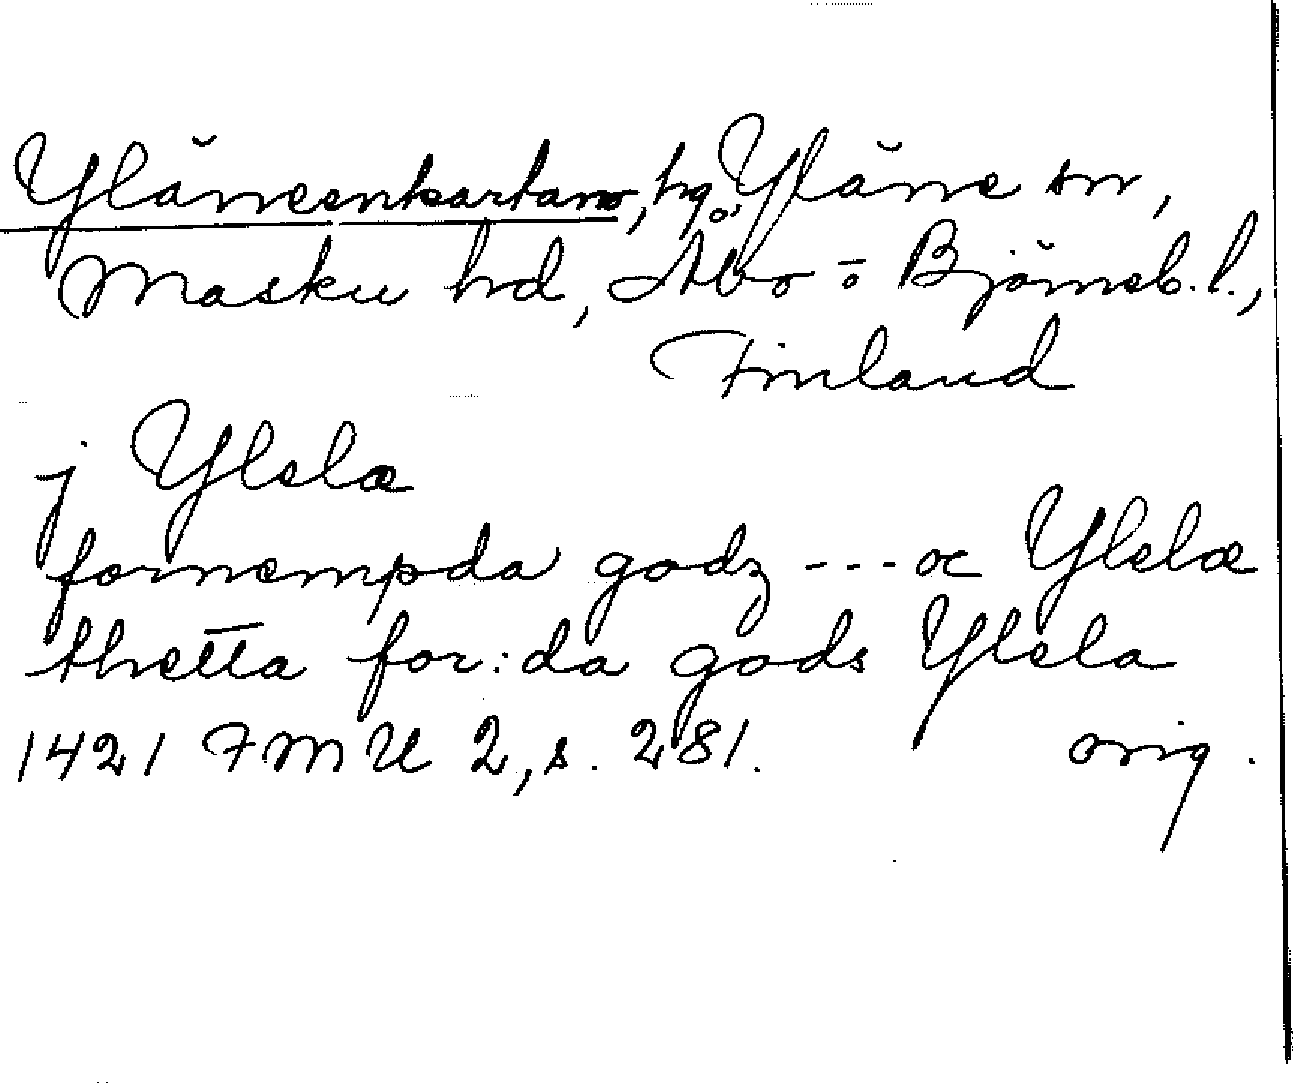 Yläneenkartano, hg o, Yläne sn,
Masku hd, Åbo o Björneb. l.,
Finland
j Ylelæ
fornempda godz --- oc Ylelæ
thetta for:da gods Ylela
1421 FMU 2, s. 281. orig.